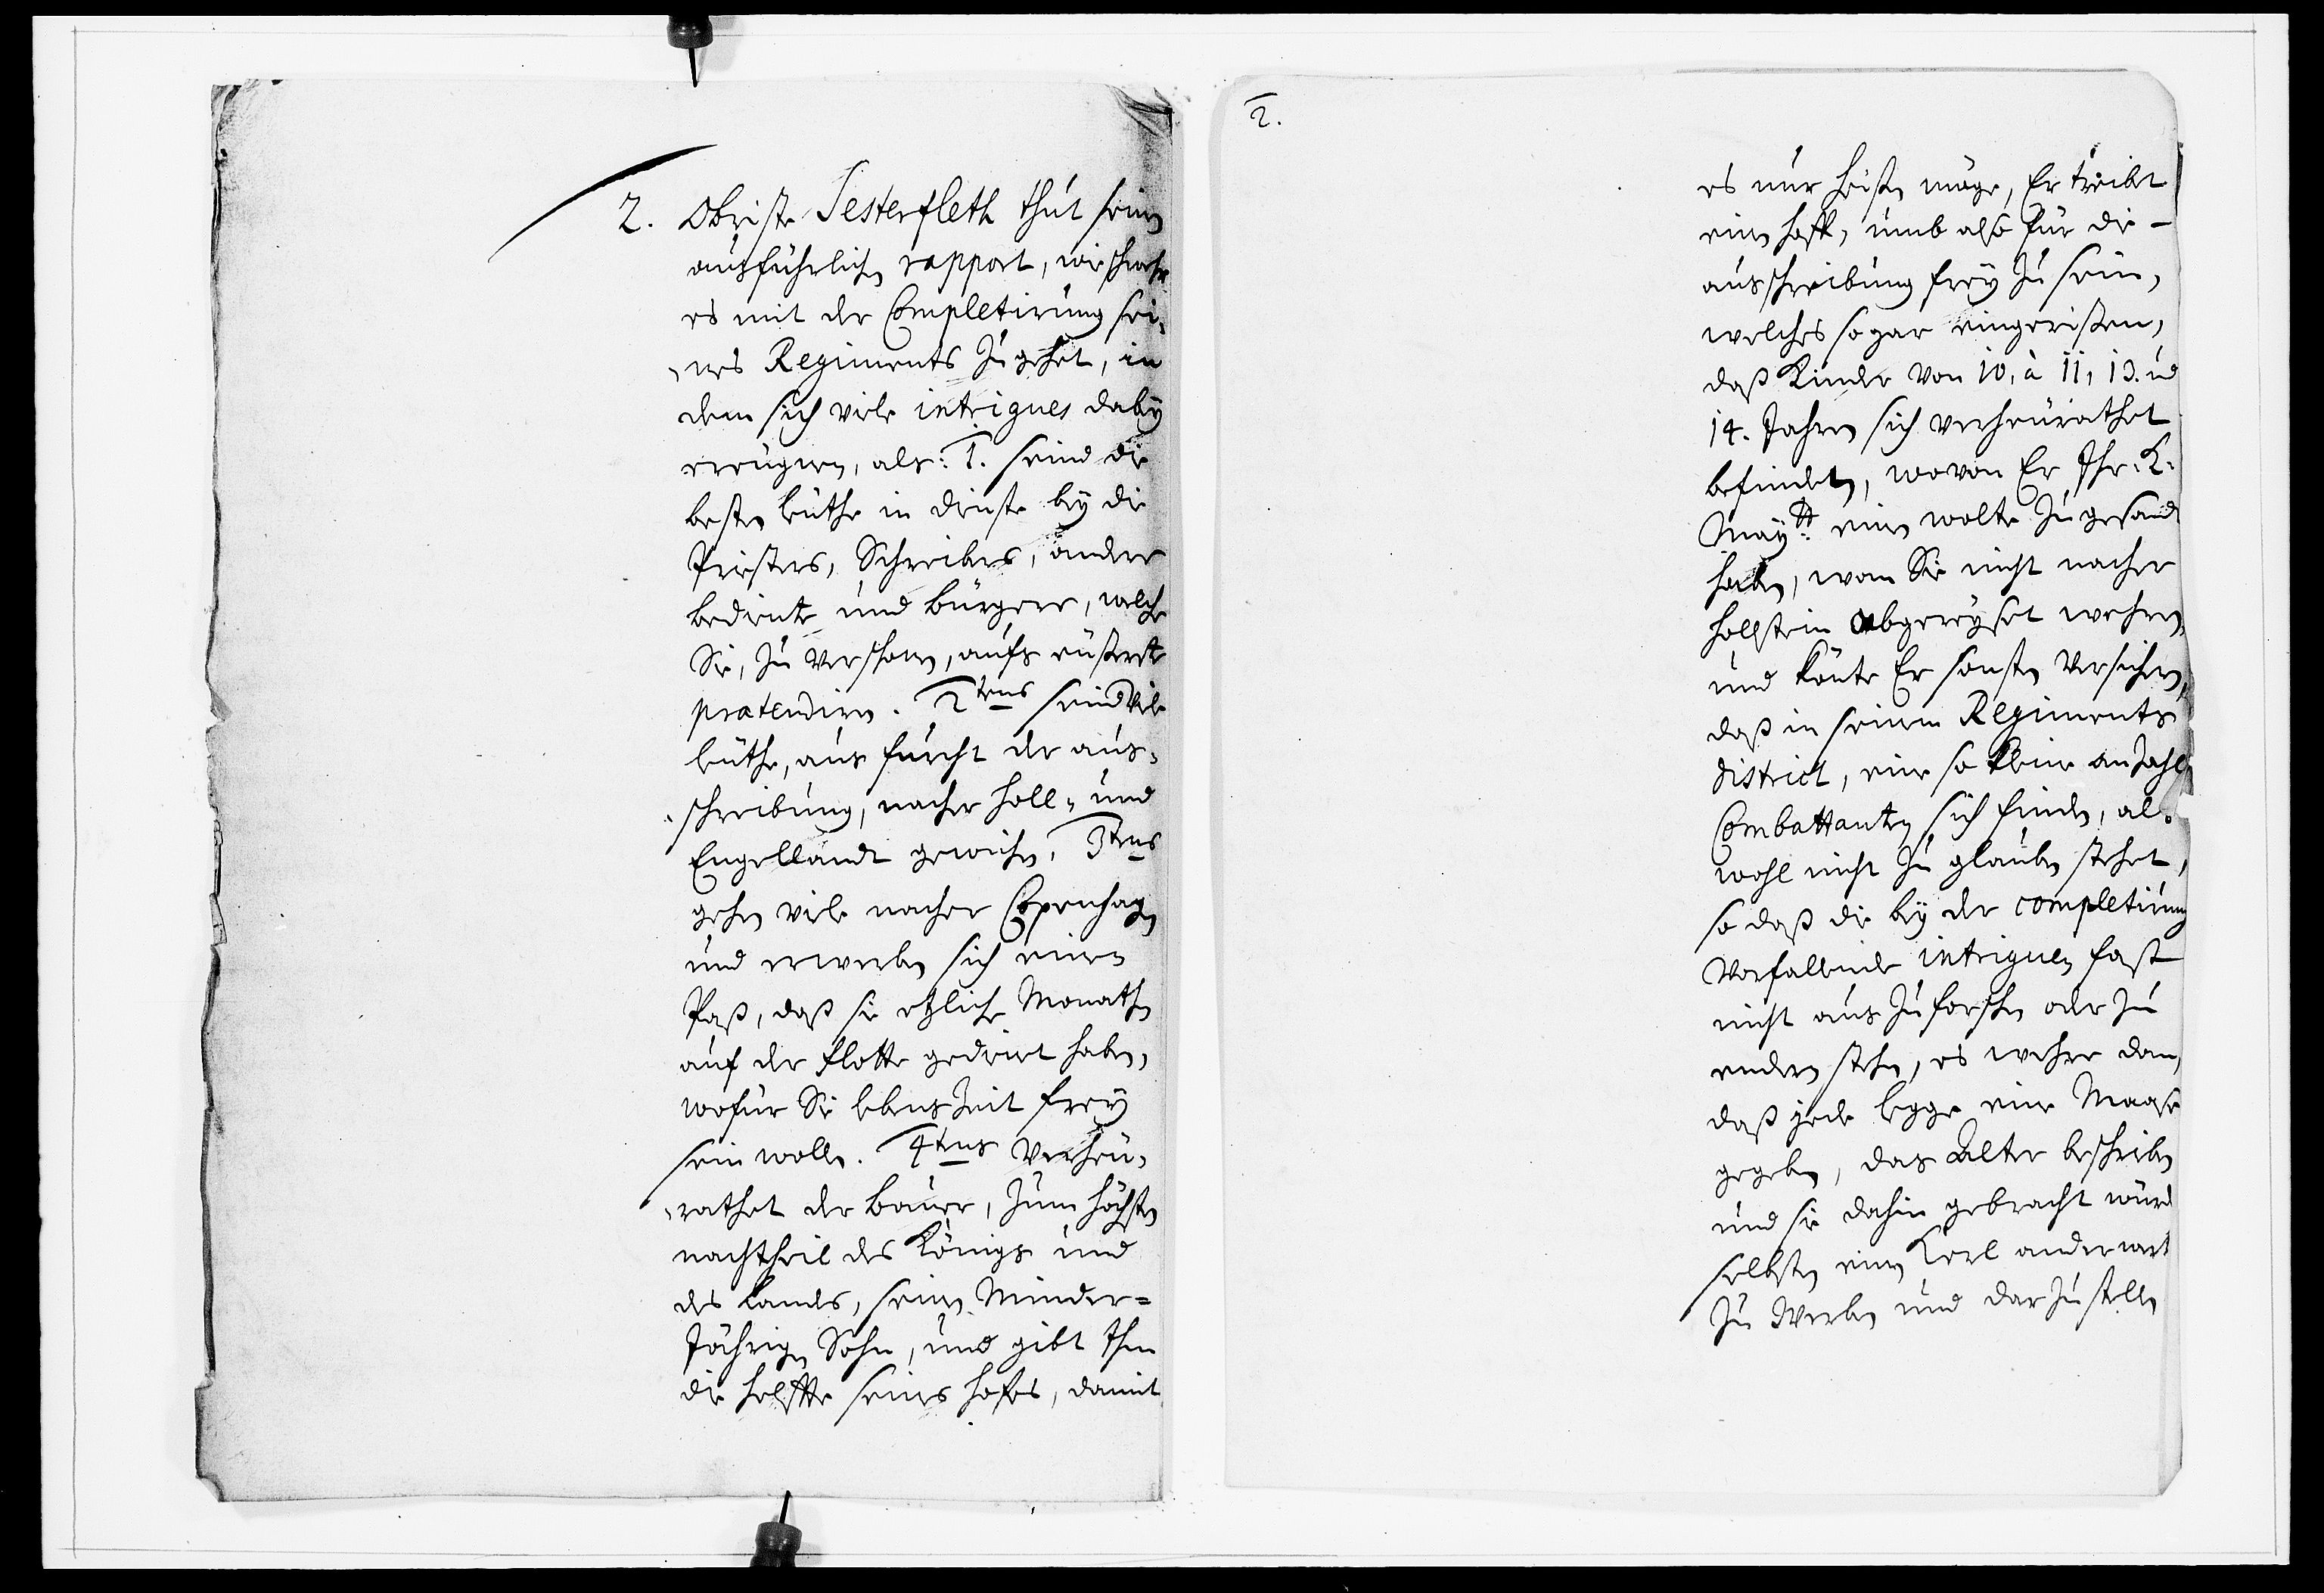 2. Obriste Jesterfleth thut seinen
ausführlichen rapport, wie schwehr
es mit der Completirung sei-
nes Regiments zugehet, in
dem sich viele intrigues dabey
ereügnen, als: 1. seind die
besten leüthe in dienste bey die
Priesters, Schreibers, andere
bediente und bürgere, welche
Sie, zu verschonen, aufs eüßerste
prætendiren. 2tens seind viele
leüthe, aus furcht der aus-
schreibung, nacher Holl- und
Engellandt gewichen, 3tens
gehen viele nacher Copenhagen
und erwerben sich einen
Paß, daß sie etzliche Monathen
auf der flotte gedient haben,
wofür Sie lebens Zeit frey
sein wollen. 4tens verheü-
rathet der bauer, zum höchsten
nachtheil des Königs und
des Landes, seinen Minder-
Jährigen Sohn, und gibt Ihm
die helffte seines hofes, damit
2.
es nur heisen möge, Er treibet
einen hoff, umb also für die
ausschreibung frey zu sein,
welches so gar eingerißen,
daß Kinder von 10, à 11, 13. ud
14. Jahren sich verheürathet
befinden, wovon Er Ihr. K.
Maytt: einen wolte zugesandt
haben, wan Sie nicht nacher
Hollstein abgereyset wehren,
und könte Er sonsten versichern,
daß in seinem Regiments
district, eine so kleine anzahl
Combattanten sich finden, al-
wohl nicht zu glauben stehet,
so daß die bey der completirung
vorfallende intriguen fast
nicht aus zu forschen oder zu
endern stehen, es wehre dan,
daß jede legge eine Maaße
gegeben, das Alter beschrieben
und sie dahin gebracht würd
selbsten einen Kerl anderwart
zu werben und darzustellen